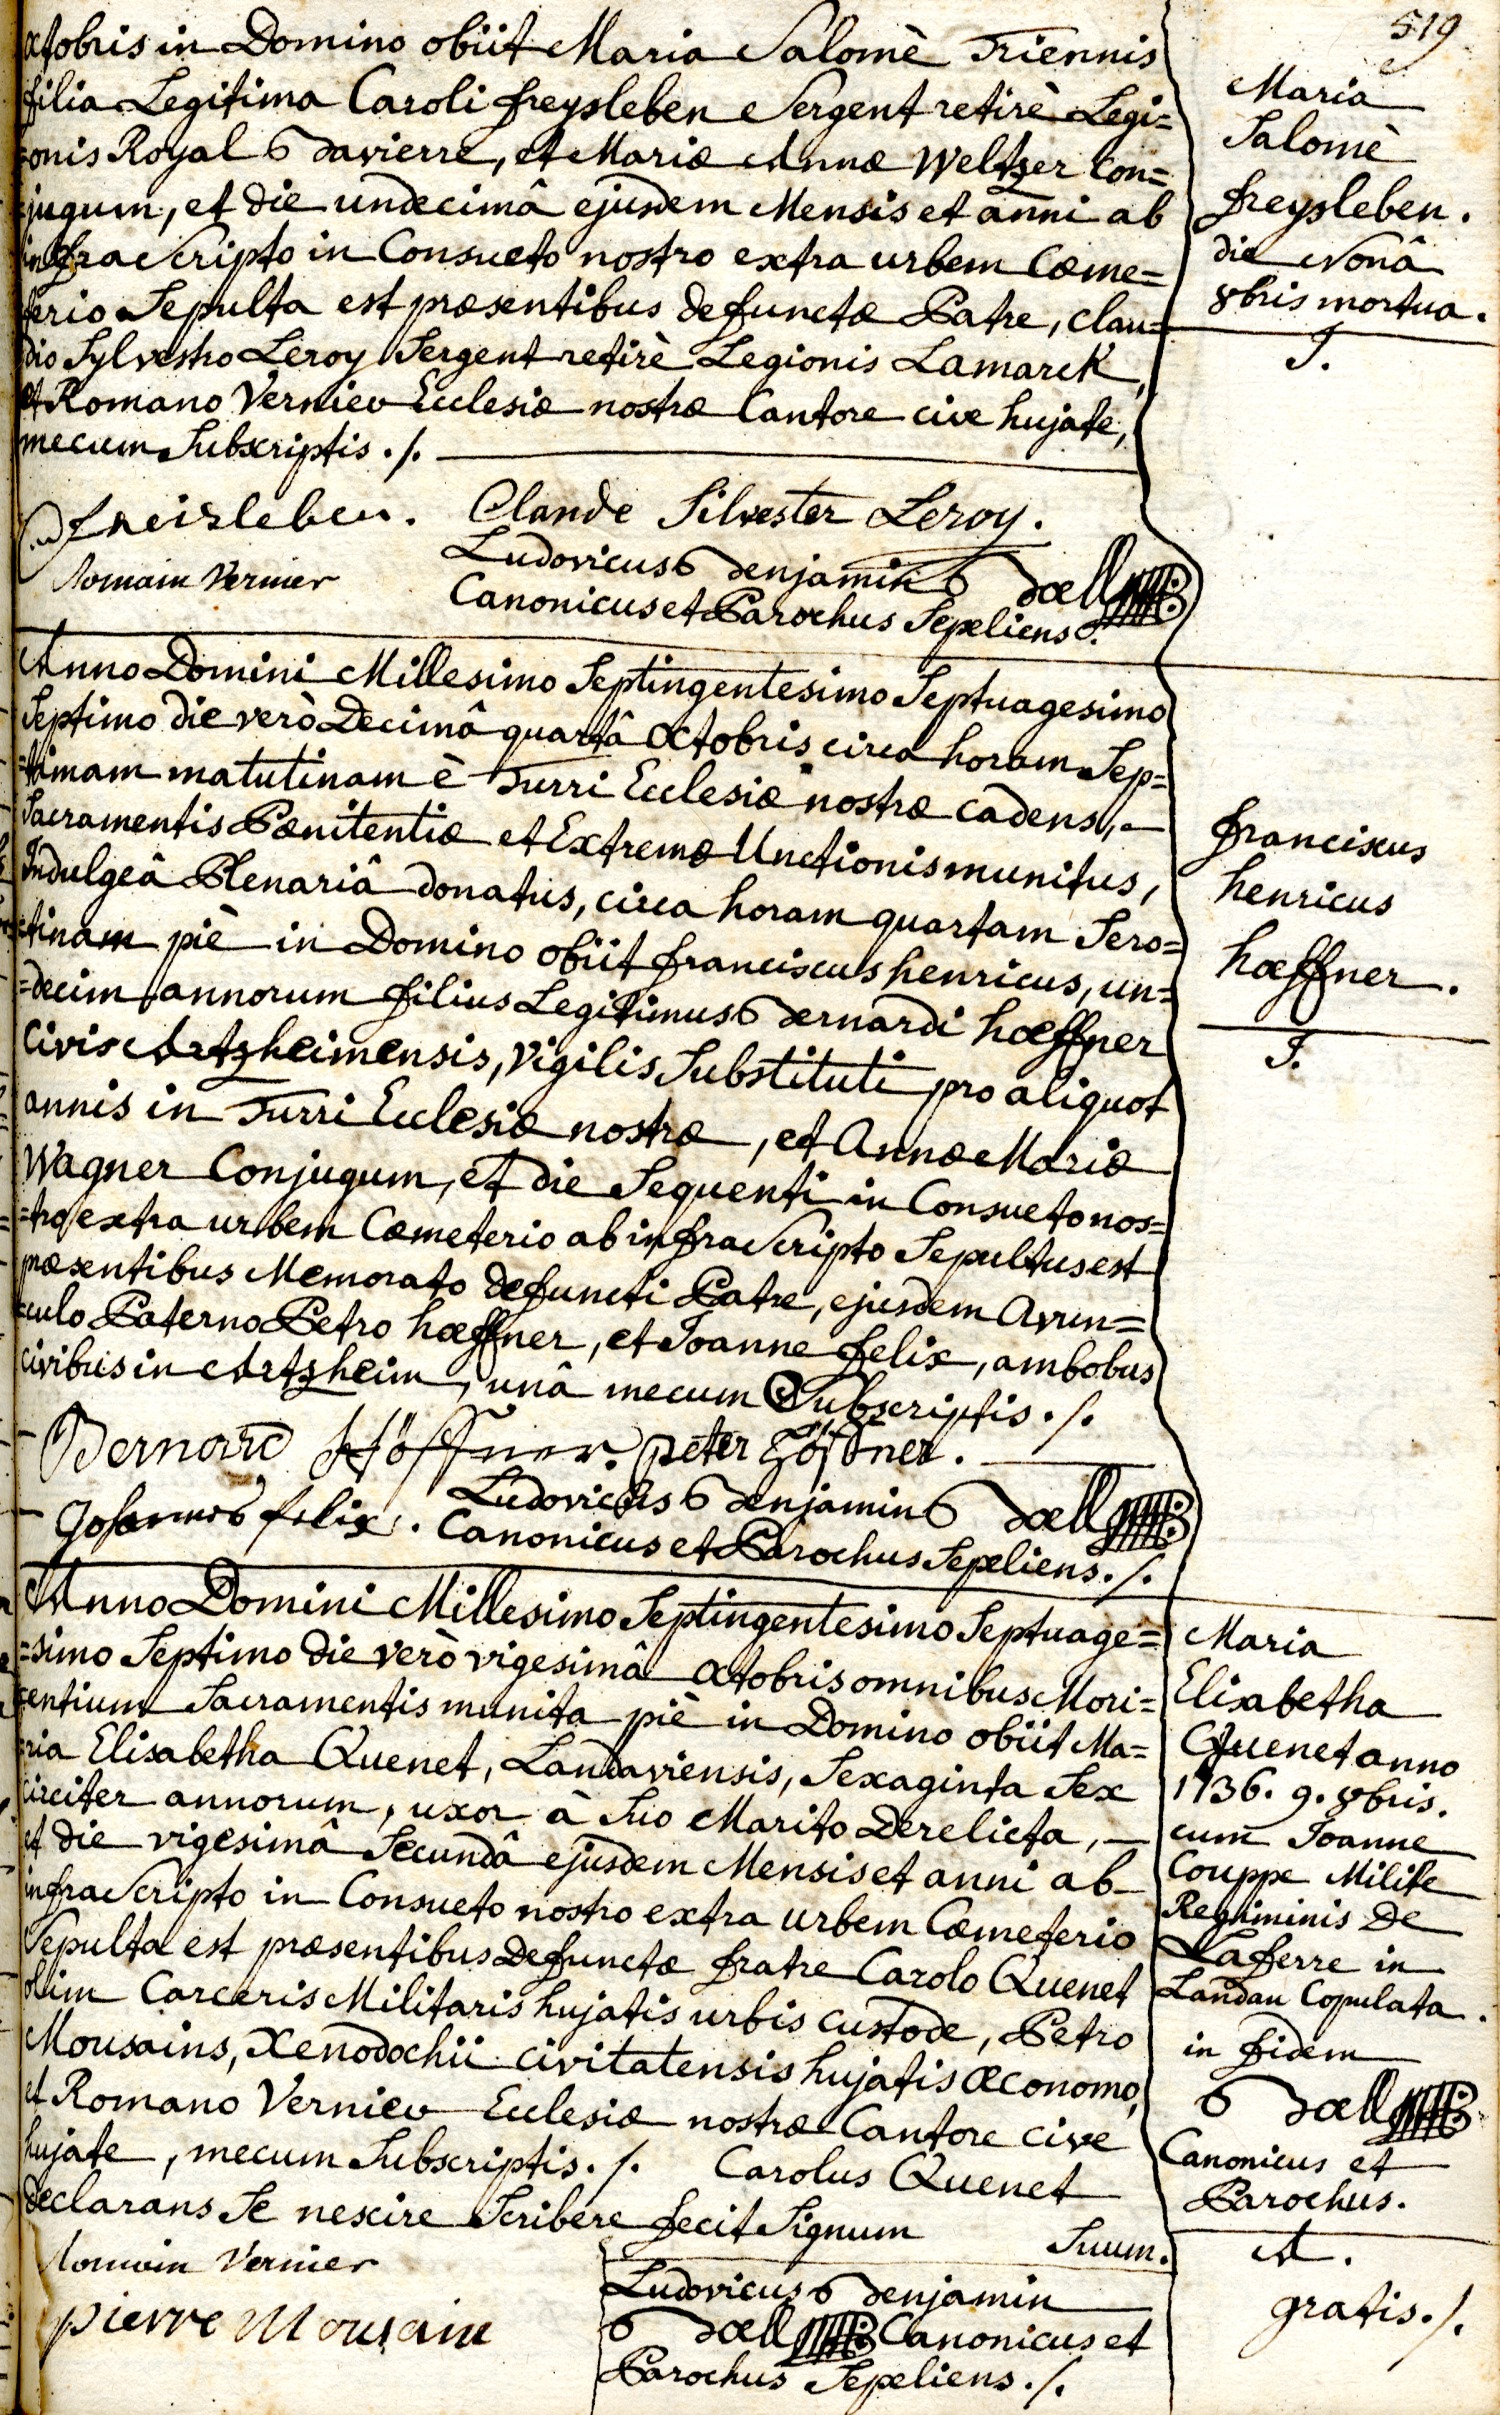 519
octobris in Domino obiit Maria Salomè Triennis
filia Legitima Caroli freysleben Sergent retirè Legi=
=onis Royal Bavierre, et Mariæ Annæ Weltzer Con=
=jugum, et die undecimâ ejusdem Mensis et anni ab
infraScripto in Consueto nostro extra urbem Cœme=
terio Sepulta est præsentibus defunctæ Patre, clau=
dio Sylvestro Leroy Sergent retirè Legionis Lamarck,
et Romano Vernier Ecclesiæ nostræ Cantore cive hujate,
mecum Subscriptis ./.
freisleben. Claude Silvester Leroy.
Romain Vernier
Ludovicus Benjamin Bœll
Canonicus et Parochus Sepeliens
Maria
Salomè
freysleben.
die nonâ
8bris mortua.
J.
Anno Domini Millesimo Septingentesimo Septuagesimo
Septimo die verò Decimâ quartâ octobris circa horam Sep=
=timam matutinam è Turri Ecclesiæ nostræ cadens,
Sacramentis Pœnitentiæ et Extremæ Unctionis munitus,
Indulgeâ Plenariâ donatus, circa horam quartam Sero=
=tinam piè in Domino obiit franciscus henricus, un=
=decim annorum filius Legitimus Bernardi hœffner
Civis Artzheimensis, Vigilis Substituti pro aliquot
annis in Turri Ecclesiæ nostræ, et Annæ Mariæ
Wagner Conjugum, et die Sequenti in Consueto nos=
=tro extra urbem Cœmeterio ab infraScripto Sepultus est
præsentibus Memorato defuncti Patre, ejusdem Avun=
=culo Paterno Petro hœffner, et Joanne felix, ambobus
civibus in Artzheim, unâ mecum Subscriptis ./.
Bernard Höffner. peter Höffner.
Johannes felix. Ludovicus Benjamin Bœll
Canonicus et Parochus Sepeliens ./.
franciscus
henricus
hœffner.
J.
Anno Domini Millesimo Septingentesimo Septuage=
=simo Septimo die verò vigesimâ octobris omnibus Mori=
=entium Sacramentis munita piè in Domino obiit Ma=
=ria Elisabetha Quenet, Landaviensis, Sexaginta Sex
circiter annorum, uxor à Suo Marito Derelicta,
et die vigesimâ Secundâ ejusdem Mensis et anni ab
infraScripto in Consueto nostro extra urbem Cœmeterio
Sepulta est præsentibus Defunctæ fratre Carolo Quenet
olim Carceris Militaris hujatis urbis custode, Petro
Mousains, Xenodochii civitatensis hujatis œconomo,
et Romano Vernier Ecclesiæ nostræ Cantore cive
hujate, mecum Subscriptis ./. Carolus Quenet
declarans Se nescire Scribere fecit Signum Suum.
Romain Vernier
pierre Mousain
Ludovicus Benjamin
Bœll Canonicus et
Parochus Sepeliens ./.
Maria
Elisabetha
Quenet anno
1736. 9. 8bris.
cum Joanne
Couppe Milite
Regiminis De
Laferre in
Landau Copulata.
in fidem
Bœll
Canonicus et
Parochus.
A.
gratis ./.